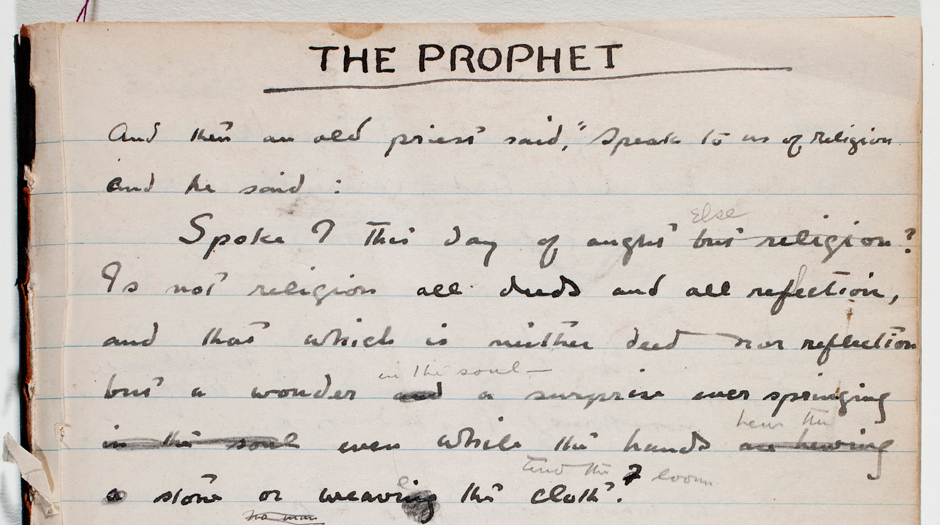 THE PROPHET
And then an old priest said, "Speak to us of religion
and he said :
Else
Spoke I this day of aught but religion?
Is not religion all deeds and all reflection,
and that which is neither deed nor reflection
in the soul —
but a wonder and a surprise ever springing
hew the
in the soul even while the hands are hewing
tend the loom
a stone or weaving the cloth?
no man